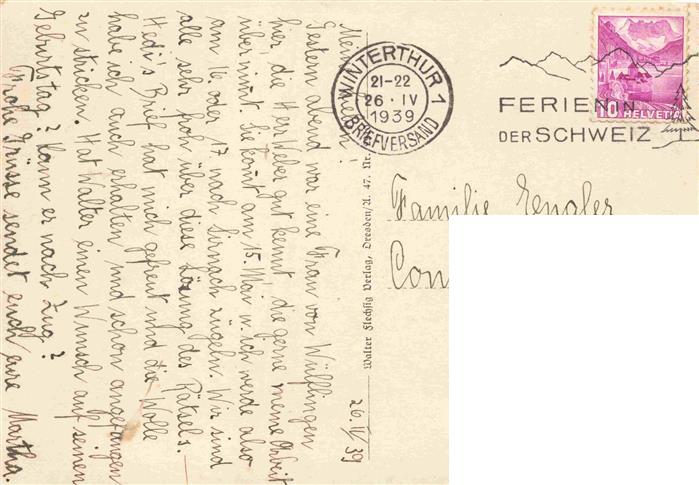 Meine Lieben!
Gestern abend war eine Frau von Wülflingen
hier, die Herr Weber gut kennt, die gerne meine Arbeit
übernimmt. Sie kommt am 15. Mai u. ich werde also
am 16 oder 17 nach Sirnach zügeln. Wir sind
alle sehr froh über diese Lösung des Rätsels.
Hedi's Brief hat mich gefreut und die Wolle
habe ich auch erhalten und schon angefangen
zu stricken. Hat Walter einen Wunsch auf seinen
Geburtstag? Kann er nach Zug?
Frohe Grüsse sendet euch eure Martha.
26.IV/39
Walter Flechsig Verlag, Dresden/A. 47. Nr.
WINTERTHUR 1
21-22
26. IV
1939
BRIEFVERSAND
FERIEN IN
DER SCHWEIZ
10 HELVETIA
Familie Engler
Con